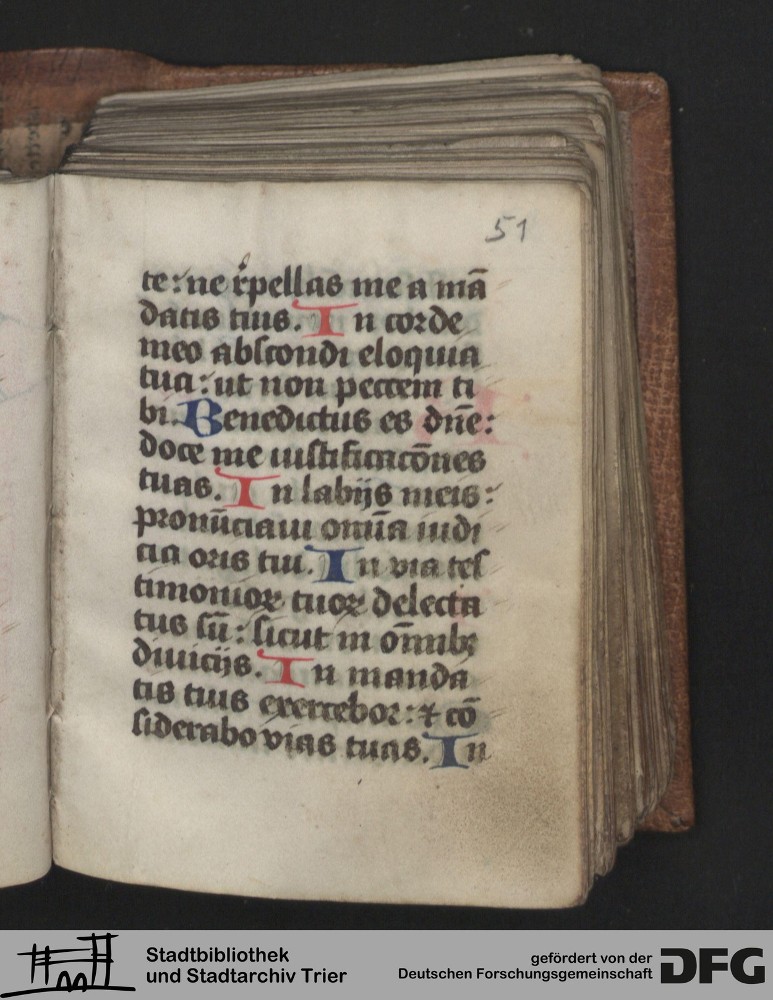 51
te: ne r̾pellas me a mā
datis tuis. In corde
meo abscondi eloquia
tua: ut non peccem ti
bi. Benedictus es dn̄e:
doce me iustificacōnes
tuas. In labijs meis:
pronūciaui omīa iudi
cia oris tui. In via tes
timonioꝝ tuoꝝ delecta
tus sū: sicut in om̄nibꝫ
diuicijs. In manda
tis tuis exercebor: ⁊ cō
siderabo vias tuas. In
Stadtbibliothek
und Stadtarchiv Trier
gefördert von der
Deutschen Forschungsgemeinschaft
DFG